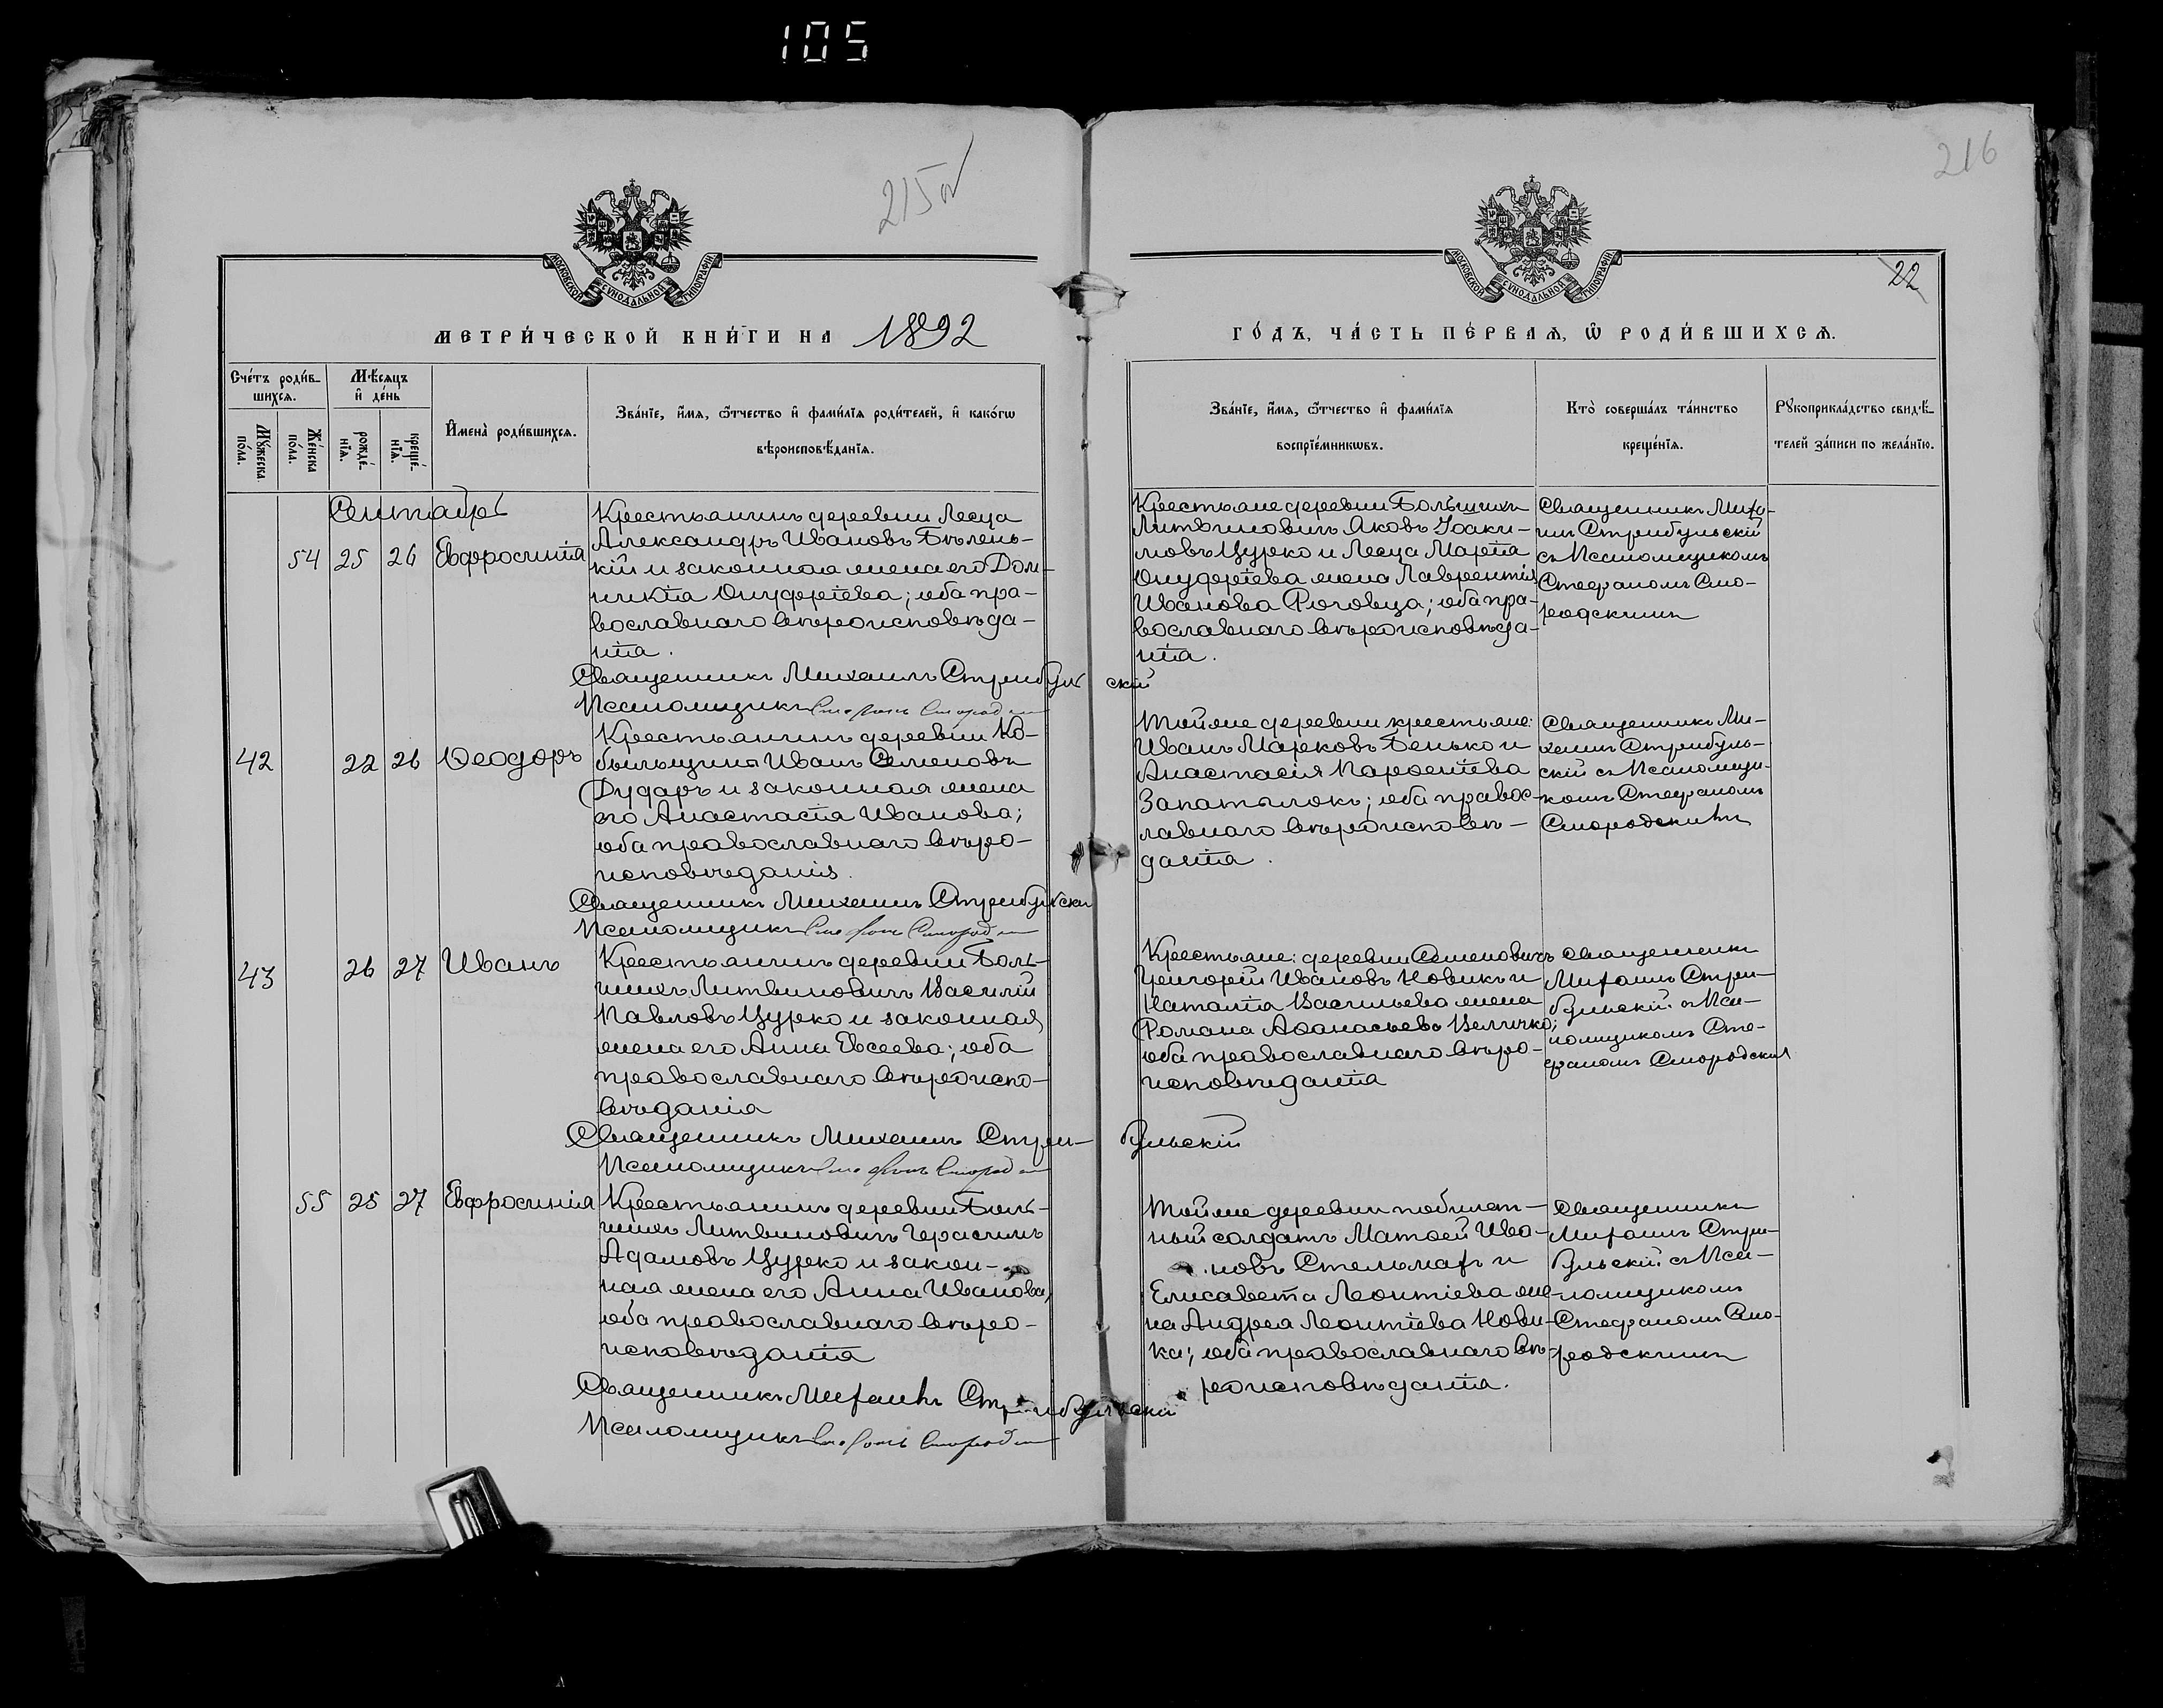 105
215об
216
МОСКОВСКОЙ СУНОДАЛЬНОЙ ТИПОГРАФІИ
МОСКОВСКОЙ СУНОДАЛЬНОЙ ТИПОГРАФІИ
22
МЕТРИ́ЧЕСКОЙ КНИ́ГИ НА 1892
ГО́ДЪ, ЧА́СТЬ ПЕ́РВАѦ, Ѡ҆ РОДИ́ВШИХСѦ.
Сче́тъ роди́в-
шихсѧ.
Мꙋ́жеска по́ла.
Же́нска по́ла.
Мѣ́сѧцъ
и҆ де́нь
рожде́-
нїѧ.
креще́-
нїѧ.
И҆мена̀ роди́вшихсѧ.
Зва́нїе, и҆́мѧ, ѻ҆́тчество и҆ фами́лїѧ роди́телей, и҆ како́гѡ
вѣроисповѣ́данїѧ.
Зва́нїе, и҆́мѧ, ѻ҆́тчество и҆ фами́лїѧ
воспрїе́мникѡвъ.
Кто̀ соверша́лъ та́инство
креще́нїѧ.
Рꙋкоприкла́дство свидѣ́-
телей за́писи по жела́нїю.
Сентябрь
54 25 26 Евфросинія
Крестьянинъ деревни Лесца
Александръ Ивановъ Бѣлень-
кій и законная жена его Дом-
никія Онуфріева; оба пра-
вославнаго вѣроисповѣда-
нія.
Священникъ Михаилъ Стрибульскій
Псаломщикъ Стефанъ Смород
Крестьяне деревни Большихъ
Литвиновичъ Яковъ Іоаки-
мовъ Цурко и Лесца Марѳа
Онуфріева жена Лаврентія
Иванова Роговца; оба пра-
вославнаго вѣроисповѣда-
нія.
Священникъ Миха-
илъ Стрибульскій
съ Псаломщикомъ
Стефаномъ Смо-
родскимъ
42 22 26 Ѳеодоръ
Крестьянинъ деревни Ко-
быльщина Иванъ Семеновъ
Дударъ и законная жена
его Анастасія Иванова;
оба православнаго вѣро-
исповѣданія.
Священникъ Михаилъ Стрибульскій
Псаломщикъ Стефанъ Смород
Тойже деревни крестьяне:
Иванъ Марковъ Бенько и
Анастасія Парѳентіева
Запатылокъ; оба правос-
лавнаго вѣроисповѣ-
данія.
Священникъ Ми-
хаилъ Стрибуль-
скій съ Псаломщи-
комъ Стефаномъ
Смородскимъ
43 26 27 Иванъ
Крестьянинъ деревни Боль-
шихъ Литвиновичъ Василій
Павловъ Цурко и законная
жена его Анна Евсеева; оба
православнаго вѣроиспо-
вѣданія
Священникъ Михаилъ Стрибульскій
Псаломщикъ Стефанъ Смород
Крестьяне: деревни Семеновичъ
Григорій Ивановъ Новикъ и
Наталія Васильева жена
Романа Аѳанасьева Величко;
оба православнаго вѣро-
исповѣданія
Священникъ
Михаилъ Стри-
бульскій съ Пса-
ломщикомъ Сте-
фаномъ Смородским
55 25 27 Евфросинія
Крестьянинъ деревни Боль-
шихъ Литвиновичъ Герасимъ
Адамовъ Цурко и закон-
ная жена его Анна Иванова,
оба православнаго вѣро-
исповѣданія
Священникъ Михаилъ Стрибульскій
Псаломщикъ Стефанъ Смород
Тойже деревни побилет-
ный солдатъ Матѳей Ива-
новъ Стельмахъ и
Елисавета Леонтіева же-
на Андрея Леонтіева Нови-
ка; оба православнаго вѣ-
роисповѣданія.
Священникъ
Михаилъ Стри-
бульскій съ Пса-
ломщикомъ
Стефаномъ Смо-
родскимъ